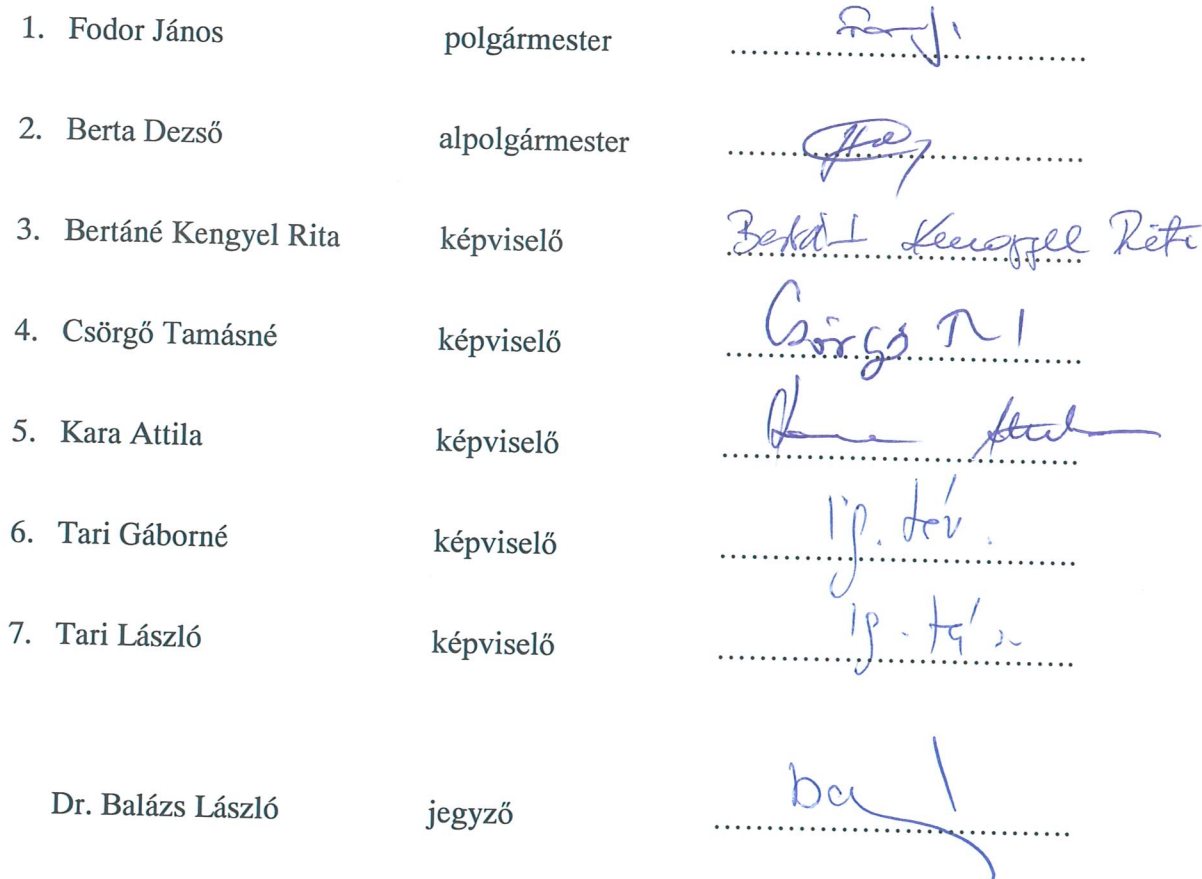 1. Fodor János polgármester ........................................
2. Berta Dezső alpolgármester ........................................
3. Bertáné Kengyel Rita képviselő ........................................
4. Csörgő Tamásné képviselő Csörgő
5. Kara Attila képviselő ........................................
6. Tari Gáborné képviselő ig. táv.
7. Tari László képviselő ig. táv.
Dr. Balázs László jegyző ........................................